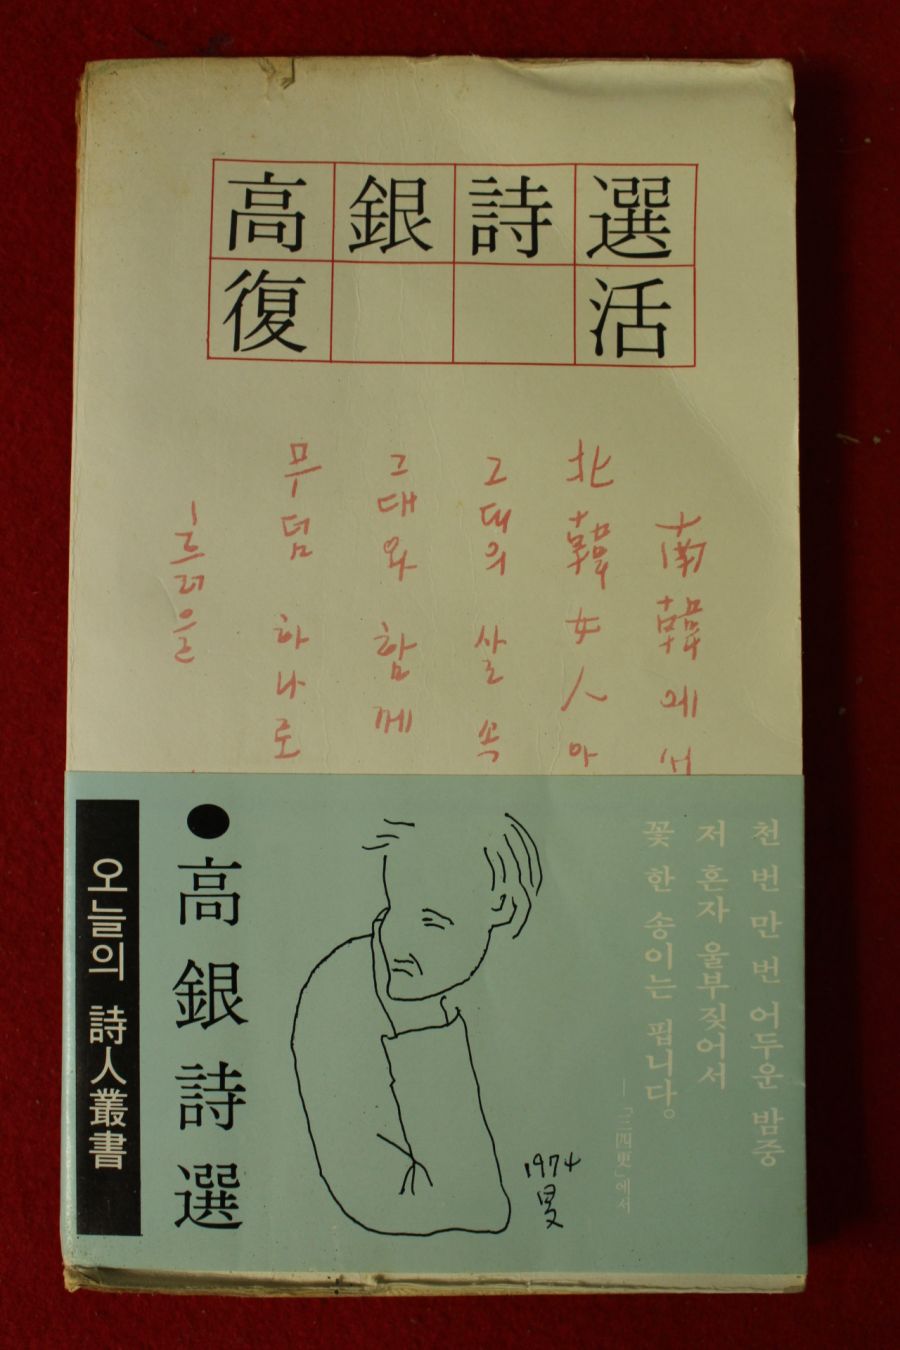 高銀詩選
復活
南韓에서
北韓女人아
그대의 살 속
그대와 함께
무덤 하나로
흐려운
천 번 만 번 어두운 밤중
저 혼자 울부짖어서
꽃 한 송이는 핍니다。
—「三四更」에서
1974
旻
●高銀詩選
오늘의 詩人叢書